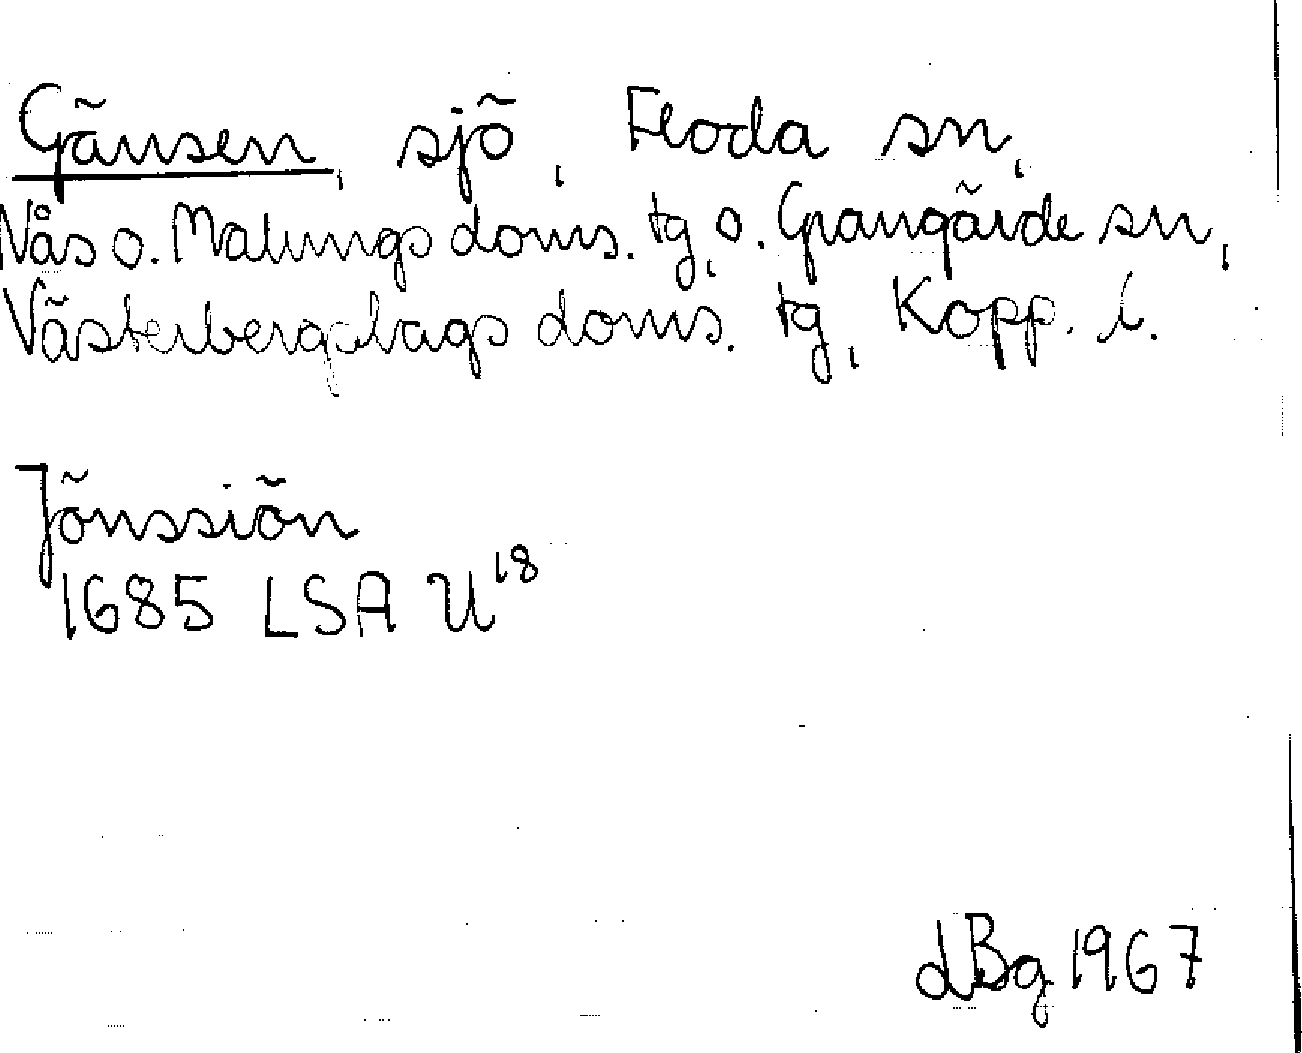 Gänsen, sjö, Floda sn,
Nås o. Malungs doms. tg, o. Grangärde sn,
Västerbergslags doms. tg, Kopp. l.
Jönssiön
1685 LSA U18
dBg 1967